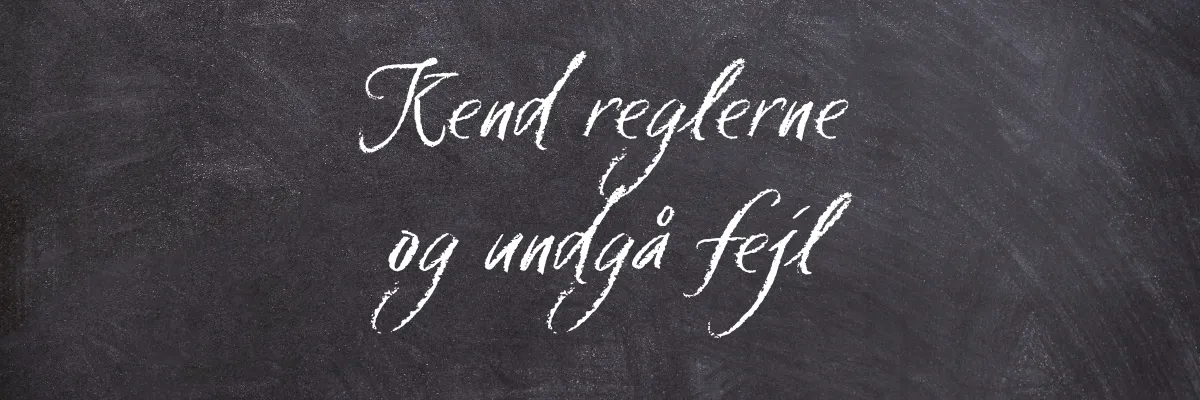 Kend reglerne
og undgå fejl